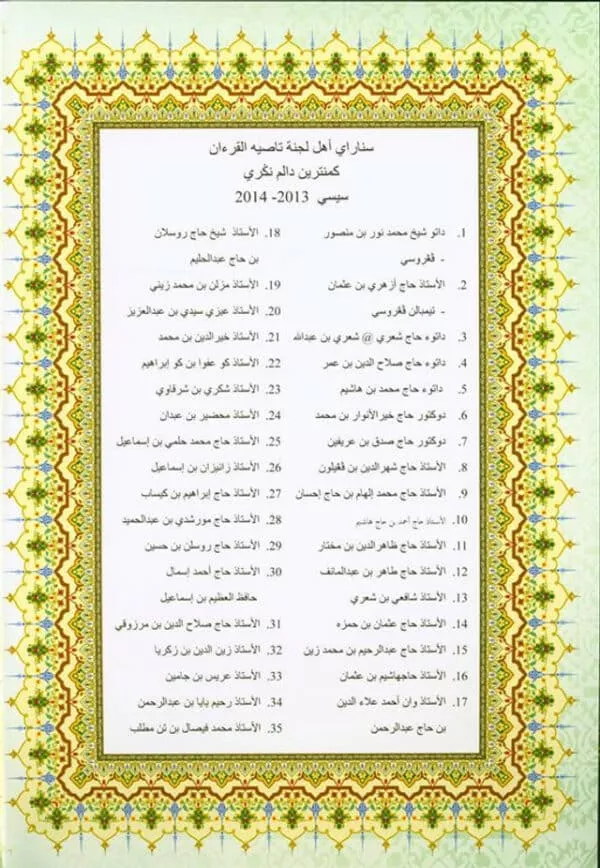 سناراي أهل لجنة تاصيه القرءان
كمنترين دالم نݢري
سيسي 2013- 2014
1. داتو شيخ محمد نور بن منصور
- ڤڠروسي
2. الأستاذ حاج أزهري بن عثمان
- تيمبالن ڤڠروسي
3. داتوء حاج شعري @ شعري بن عبدالله
4. داتوء حاج صلاح الدين بن عمر
5. داتوء حاج محمد بن هاشيم
6. دوكتور حاج خيرالأنوار بن محمد
7. دوكتور حاج صدق بن عريفين
8. الأستاذ حاج شهرالدين بن ڤڠيلون
9. الأستاذ حاج محمد إلهام بن حاج إحسان
10. الأستاذ حاج أحمد بن حاج هاشيم
11. الأستاذ حاج ظاهرالدين بن مختار
12. الأستاذ حاج طاهر بن عبدالمانف
13. الأستاذ شافعي بن شعري
14. الأستاذ حاج عثمان بن حمزه
15. الأستاذ حاج عبدالرحيم بن محمد زين
16. الأستاذ حاجهاشيم بن عثمان
17. الأستاذ وان أحمد علاء الدين
بن حاج عبدالرحمن
18. الأستاذ شيخ حاج روسلان
بن حاج عبدالحليم
19. الأستاذ مزلن بن محمد زيني
20. الأستاذ عيزي سيدي بن عبدالعزيز
21. الأستاذ خيرالدين بن محمد
22. الأستاذ كو عفوا بن كو إبراهيم
23. الأستاذ شكري بن شرقاوي
24. الأستاذ محضير بن عبدان
25. الأستاذ حاج محمد حلمي بن إسماعيل
26. الأستاذ زانيزان بن إسماعيل
27. الأستاذ حاج إبراهيم بن كيساب
28. الأستاذ حاج مورشدي بن عبدالحميد
29. الأستاذ حاج روسلن بن حسين
30. الأستاذ حاج أحمد إسمال
حافظ العظيم بن إسماعيل
31. الأستاذ حاج صلاح الدين بن مرزوقي
32. الأستاذ زين الدين بن زكريا
33. الأستاذ عريس بن جامين
34. الأستاذ رحيم يايا بن عبدالرحمن
35. الأستاذ محمد فيصال بن تن مطلب